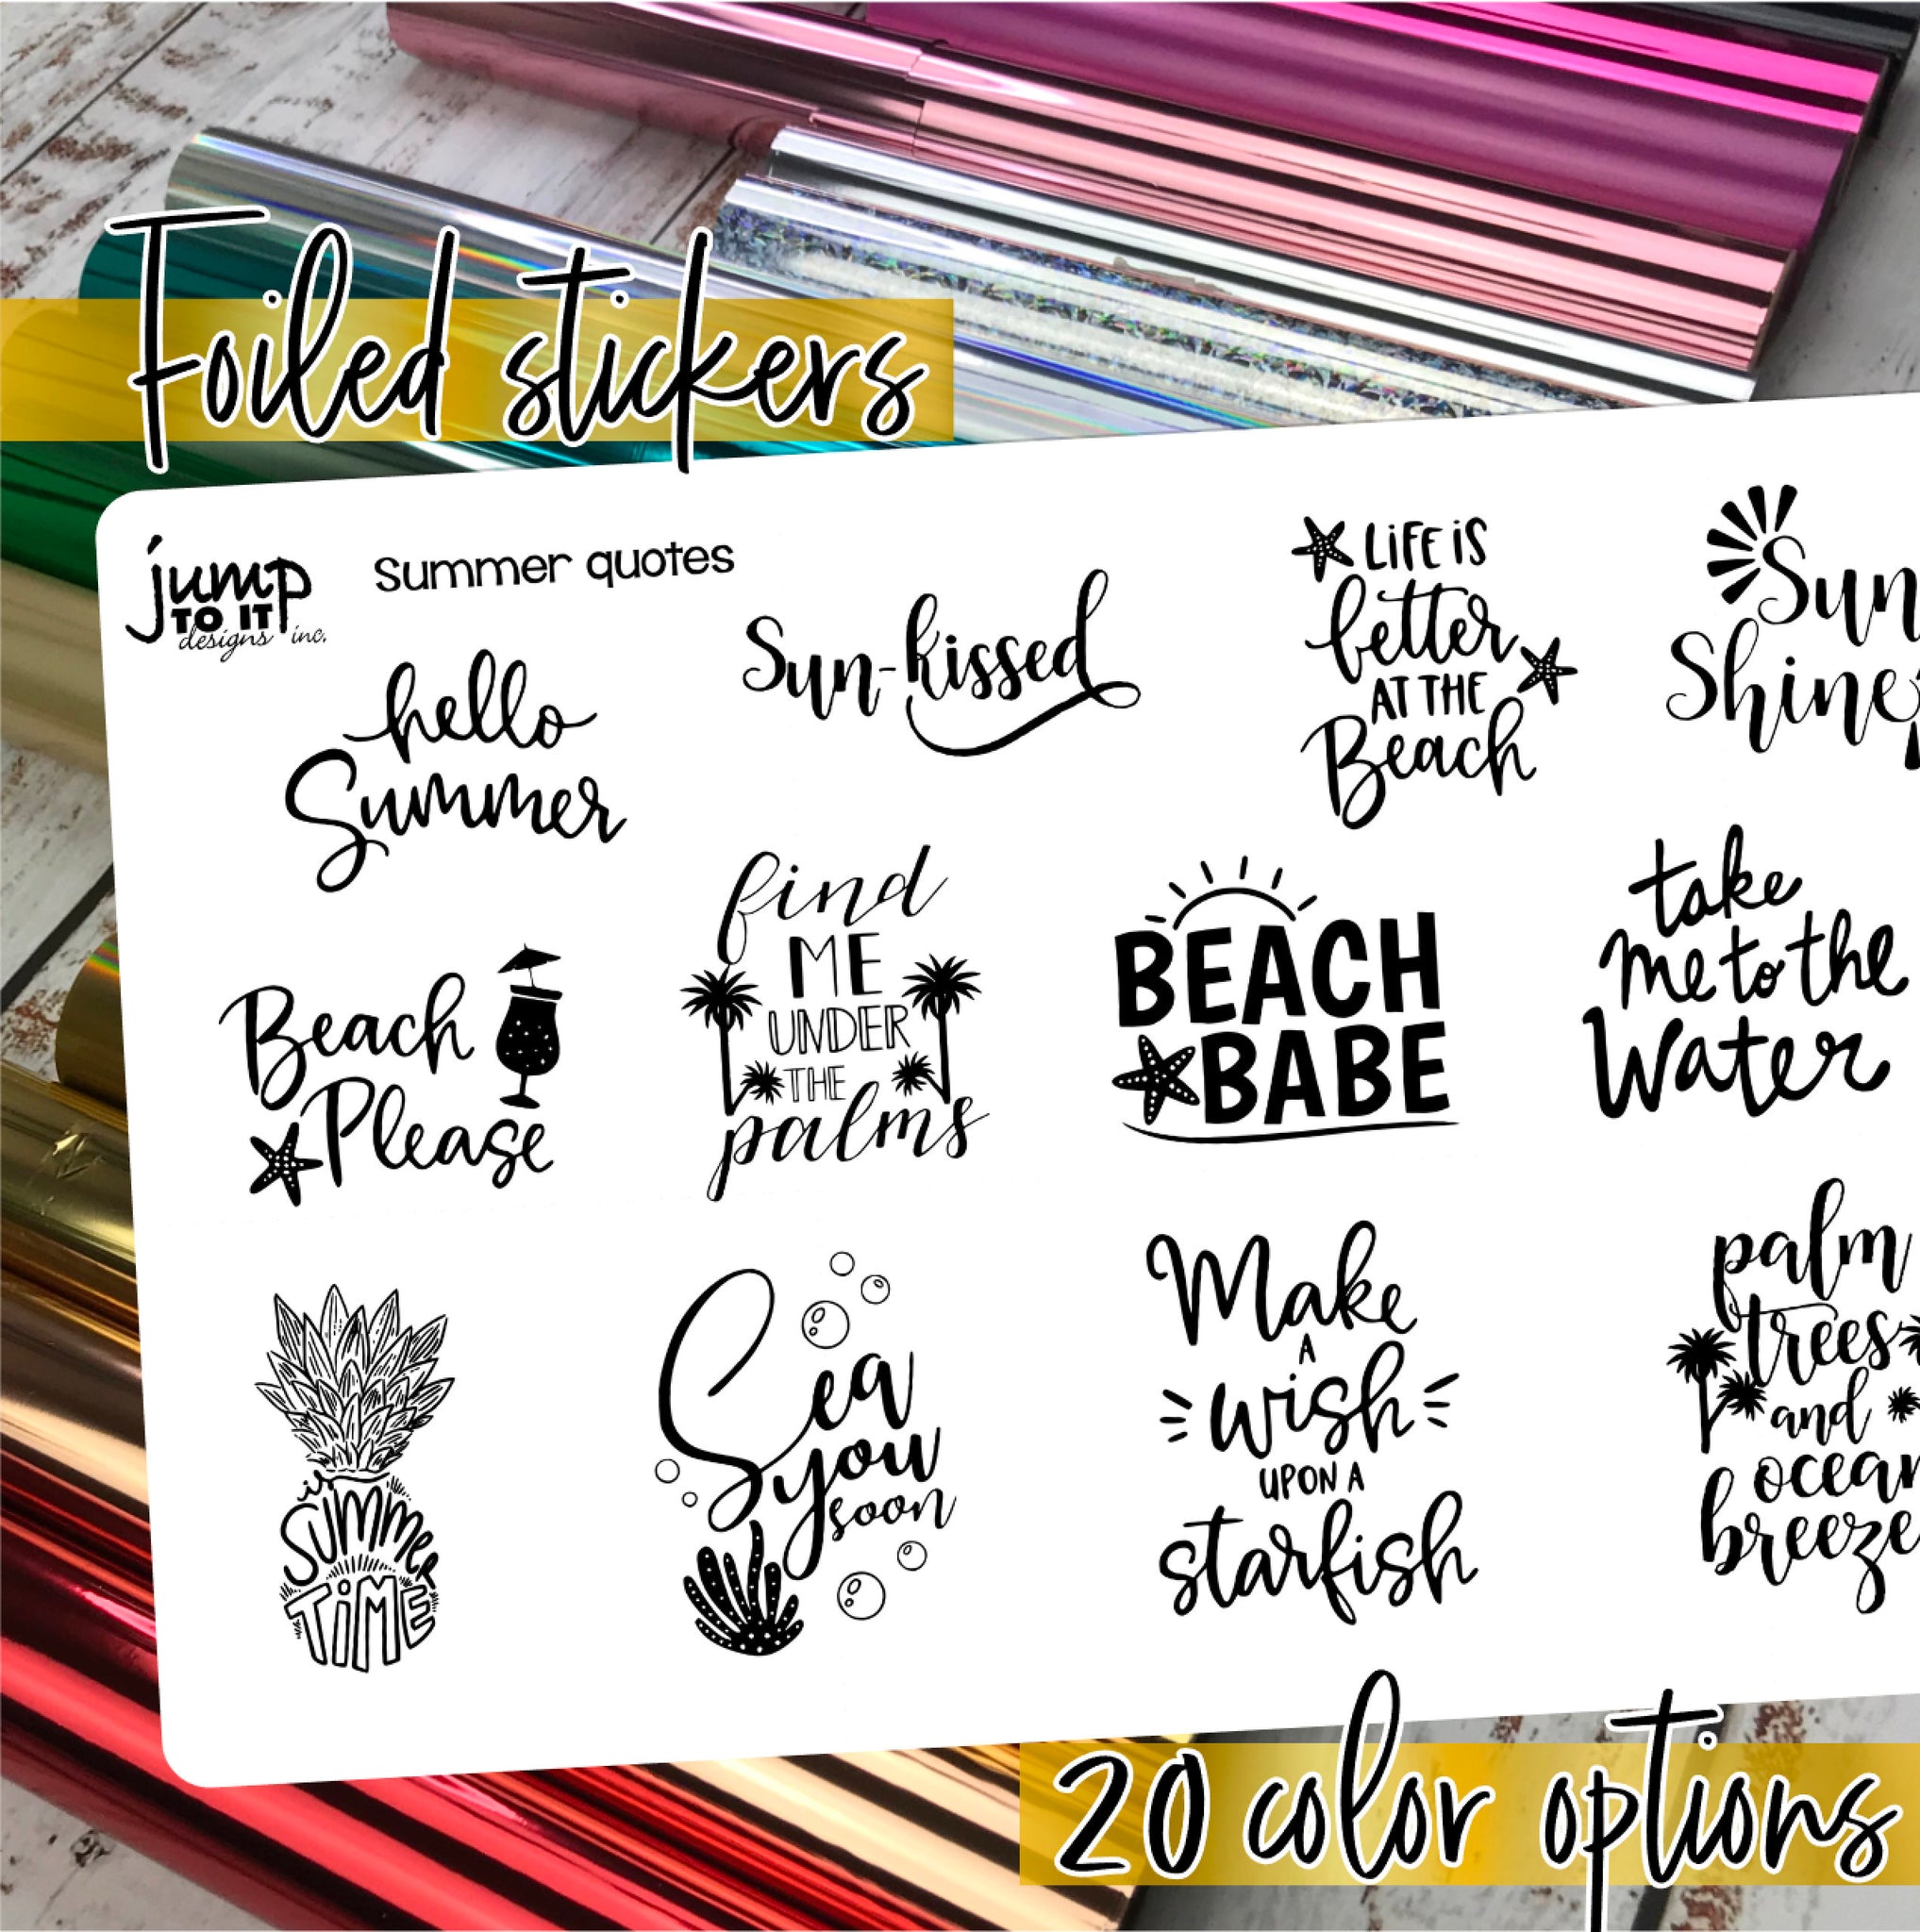 Foiled stickers
jump
TO IT
designs inc.
Summer quotes
hello
Summer
Sun-kissed
LiFE iS
better
AT THE
Beach
Sun
Shine
Beach
Please
find
ME
UNDER
THE
palms
BEACH
BABE
take
me to the
Water
it's
SUMMER
TiME
Sea
you
soon
Make
A
wish
UPON A
starfish
palm
trees
and
ocean
breeze
20 color options